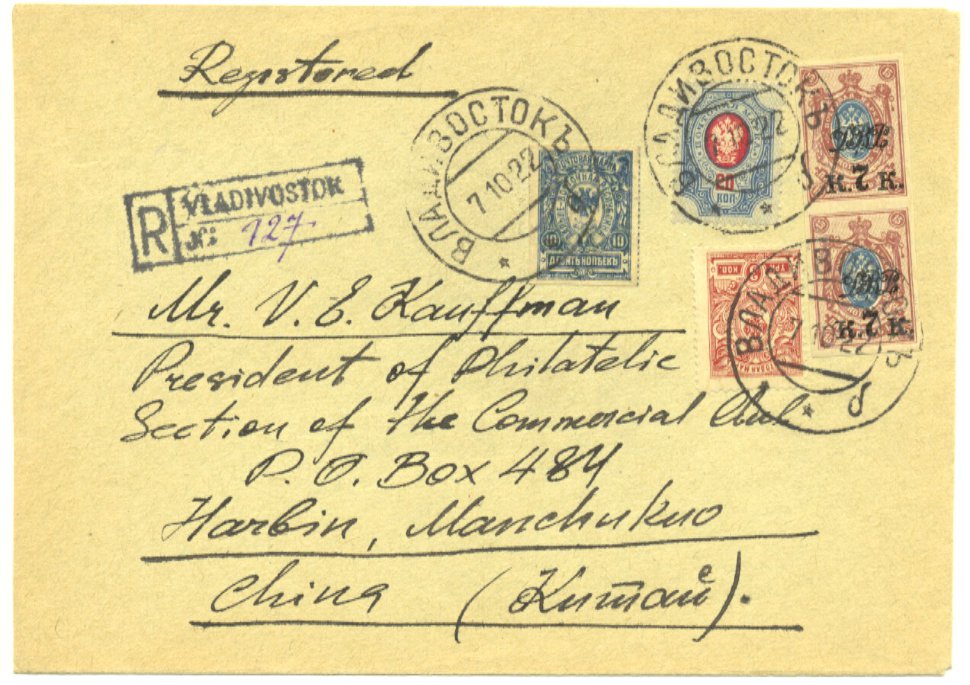 Registered
ВЛАДИВОСТОКЪ
7.10.22
ВЛАДИВОСТОКЪ
20
КОП
К. 7 К.
К. 7 К.
R VLADIVOSTOK
№: 127
10 10
ДЕСЯТЬ КОПѢЕКЪ
ВЛАДИВОСТОКЪ
7.10.22
Mr. V. E. Kauffman
President of Philatelic
Section of the Commercial Club
P. O. Box 484
Harbin, Manchukuo
China (Китай).